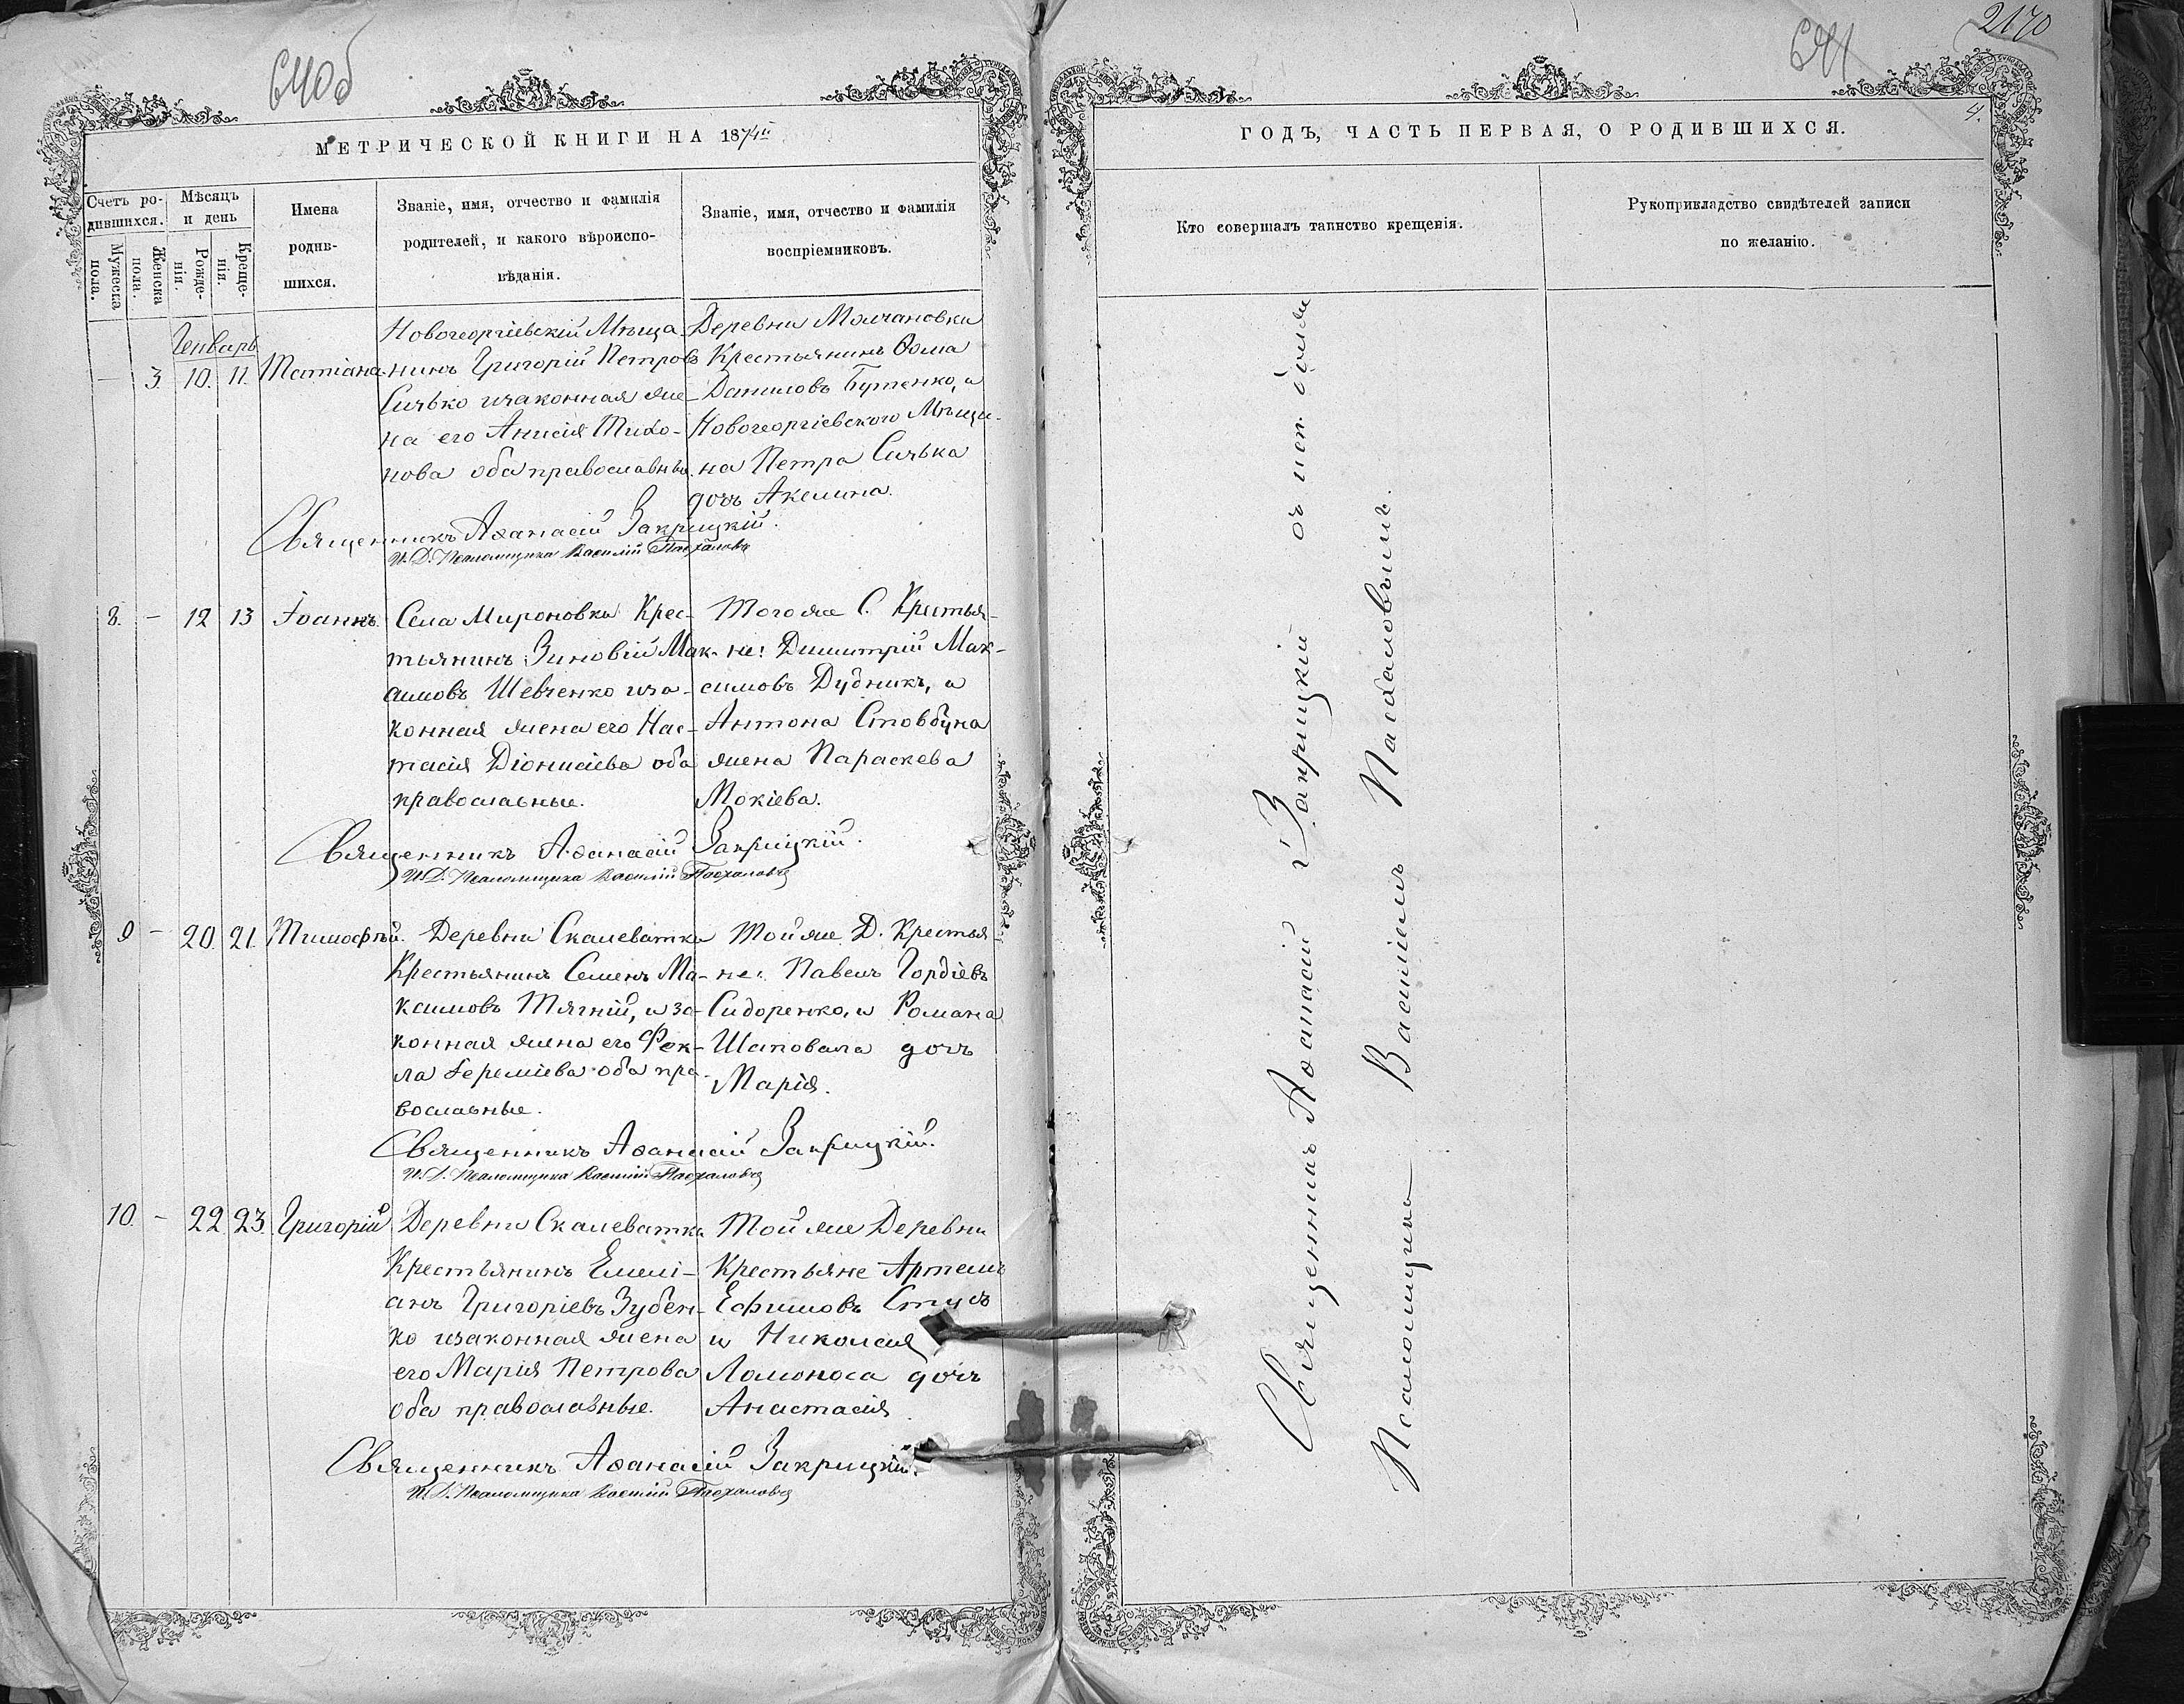 640б
МЕТРИЧЕСКОЙ КНИГИ НА 1874й
Счетъ ро-
дившихся.
Мѣсяцъ
и день
Мужеска
пола.
Женска
пола.
Рожде-
нія.
Креще-
нія.
Имена
родив-
шихся.
Званіе, имя, отчество и фамилія
родителей, и какого вѣроиспо-
вѣданія.
Званіе, имя, отчество и фамилія
воспріемниковъ.
Генварь
— 3. 10. 11. Татіана
Новогеоргіевскій Мѣща-
нинъ Григорій Петровъ
Сичько изаконная же-
на его Анисія Тихо-
нова оба православные.
Деревни Молчановки
Крестьянинъ Ѳома
Даниловъ Бутенко, и
Новогеоргіевского Мѣща-
на Петра Сичька
дочь Акелина.
Священникъ Аѳанасій Закрицкій.
И. Д. Псаломщика Василій Пасхаловъ
8. — 12 13 Іоаннъ.
Села Мироновки Крес-
тьянинъ Зиновій Мак-
симовъ Шевченко иза-
конная жена его Нас-
тасія Діонисіева оба
православные.
Тогоже С. Крестья-
не: Димитрій Мак-
симовъ Дудникъ, и
Антона Стовбуна
жена Параскева
Мокіева.
Священникъ Аѳанасій Закрицкій.
И. Д. Псаломщика Василій Пасхаловъ
9 — 20. 21. Тимофѣй.
Деревни Скалеватки
Крестьянинъ Семенъ Ма-
ксимовъ Тягній, и за-
конная жена его Фек-
ла Іереміева оба пра-
вославные.
Тойже Д. Крестья-
не: Павелъ Гордіевъ
Сидоренко, и Романа
Шаповала дочь
Марія.
Священникъ Аѳанасій Закрицкій.
И. Д. Псаломщика Василій Пасхаловъ
10. — 22. 23. Григорій
Деревни Скалеватки
Крестьянинъ Емелі-
анъ Григоріевъ Зубен-
ко изаконная жена
его Марія Петрова
оба православные.
Тойже Деревни
Крестьяне Артемъ
Ефимовъ Стусь
и Николая
Ломоноса дочь
Анастасія
Священникъ Аѳанасій Закрицкій.
И. Д. Псаломщика Василій Пасхаловъ
641
2170
4.
ГОДЪ, ЧАСТЬ ПЕРВАЯ, О РОДИВШИХСЯ.
Кто совершалъ таинство крещенія.
Рукоприкладство свидѣтелей записи
по желанію.
Священникъ Аѳанасій Закрицкій съ
Псаломщика Василіемъ Пасхаловымъ.